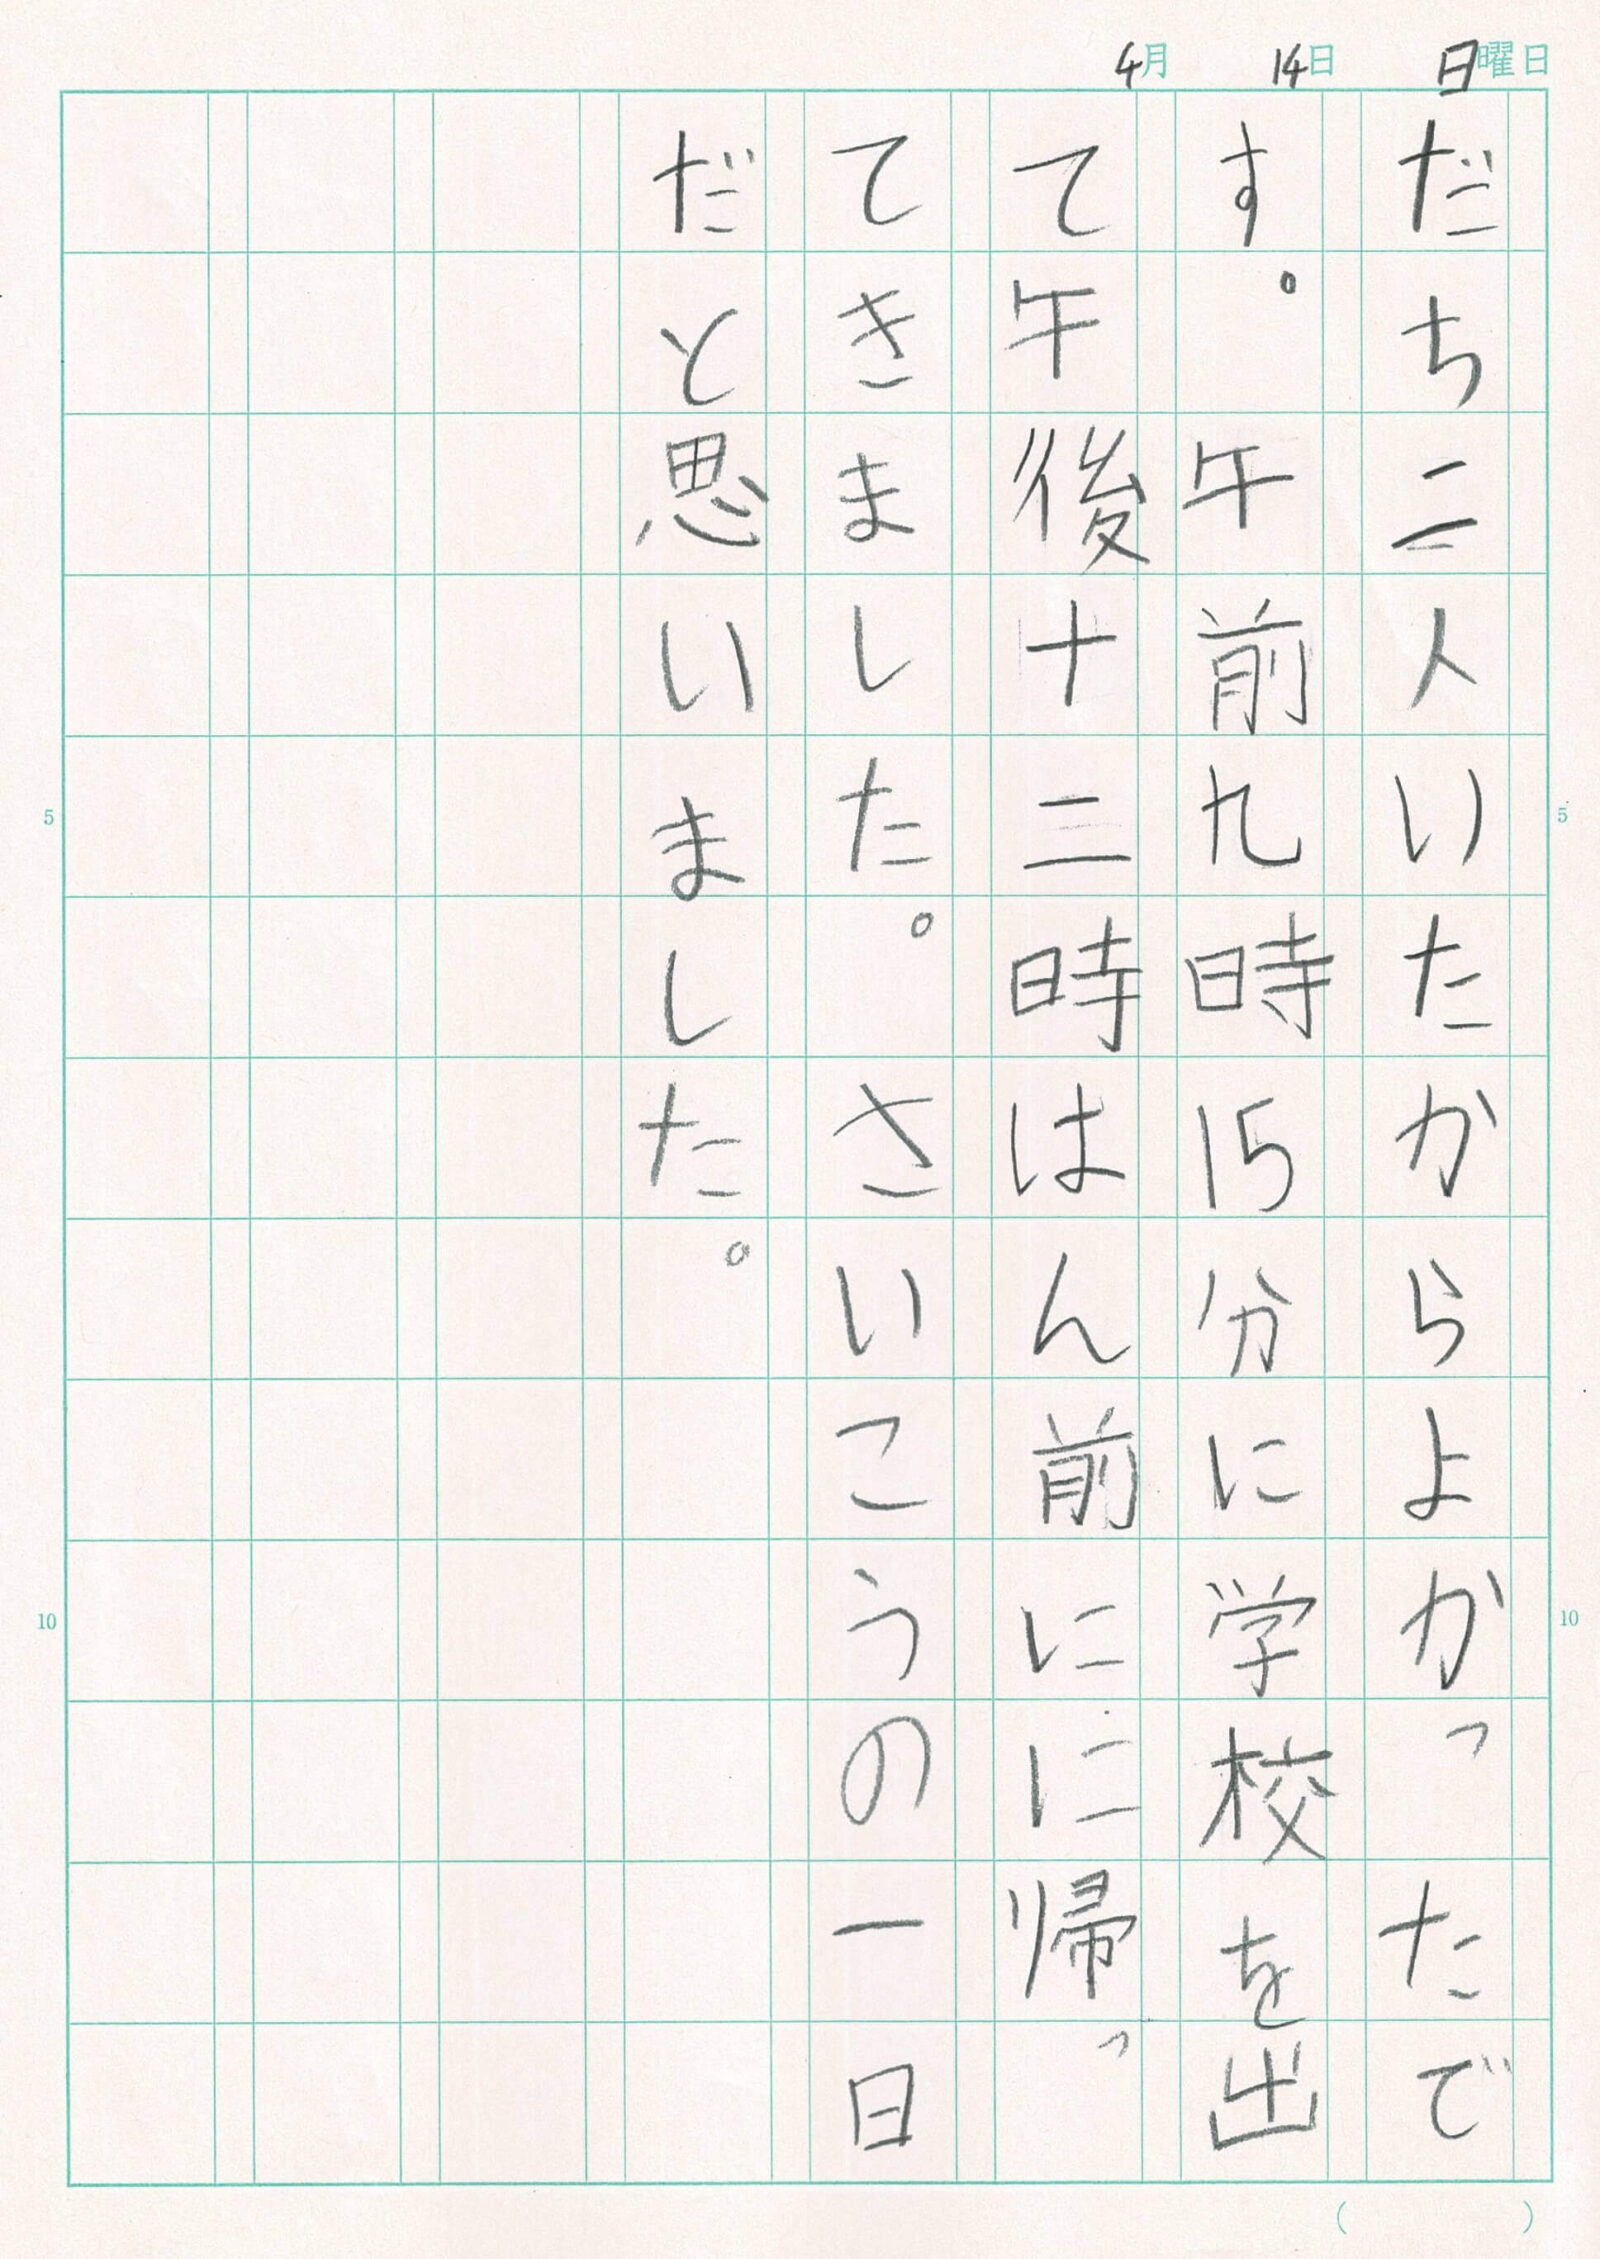 4月 14日 日曜日
だち二人いたからよかったで
す。午前九時15分に学校を出
て午後十二時はん前にに帰っ
てきました。さいこうの一日
だと思いました。
5
5
10
10
( )